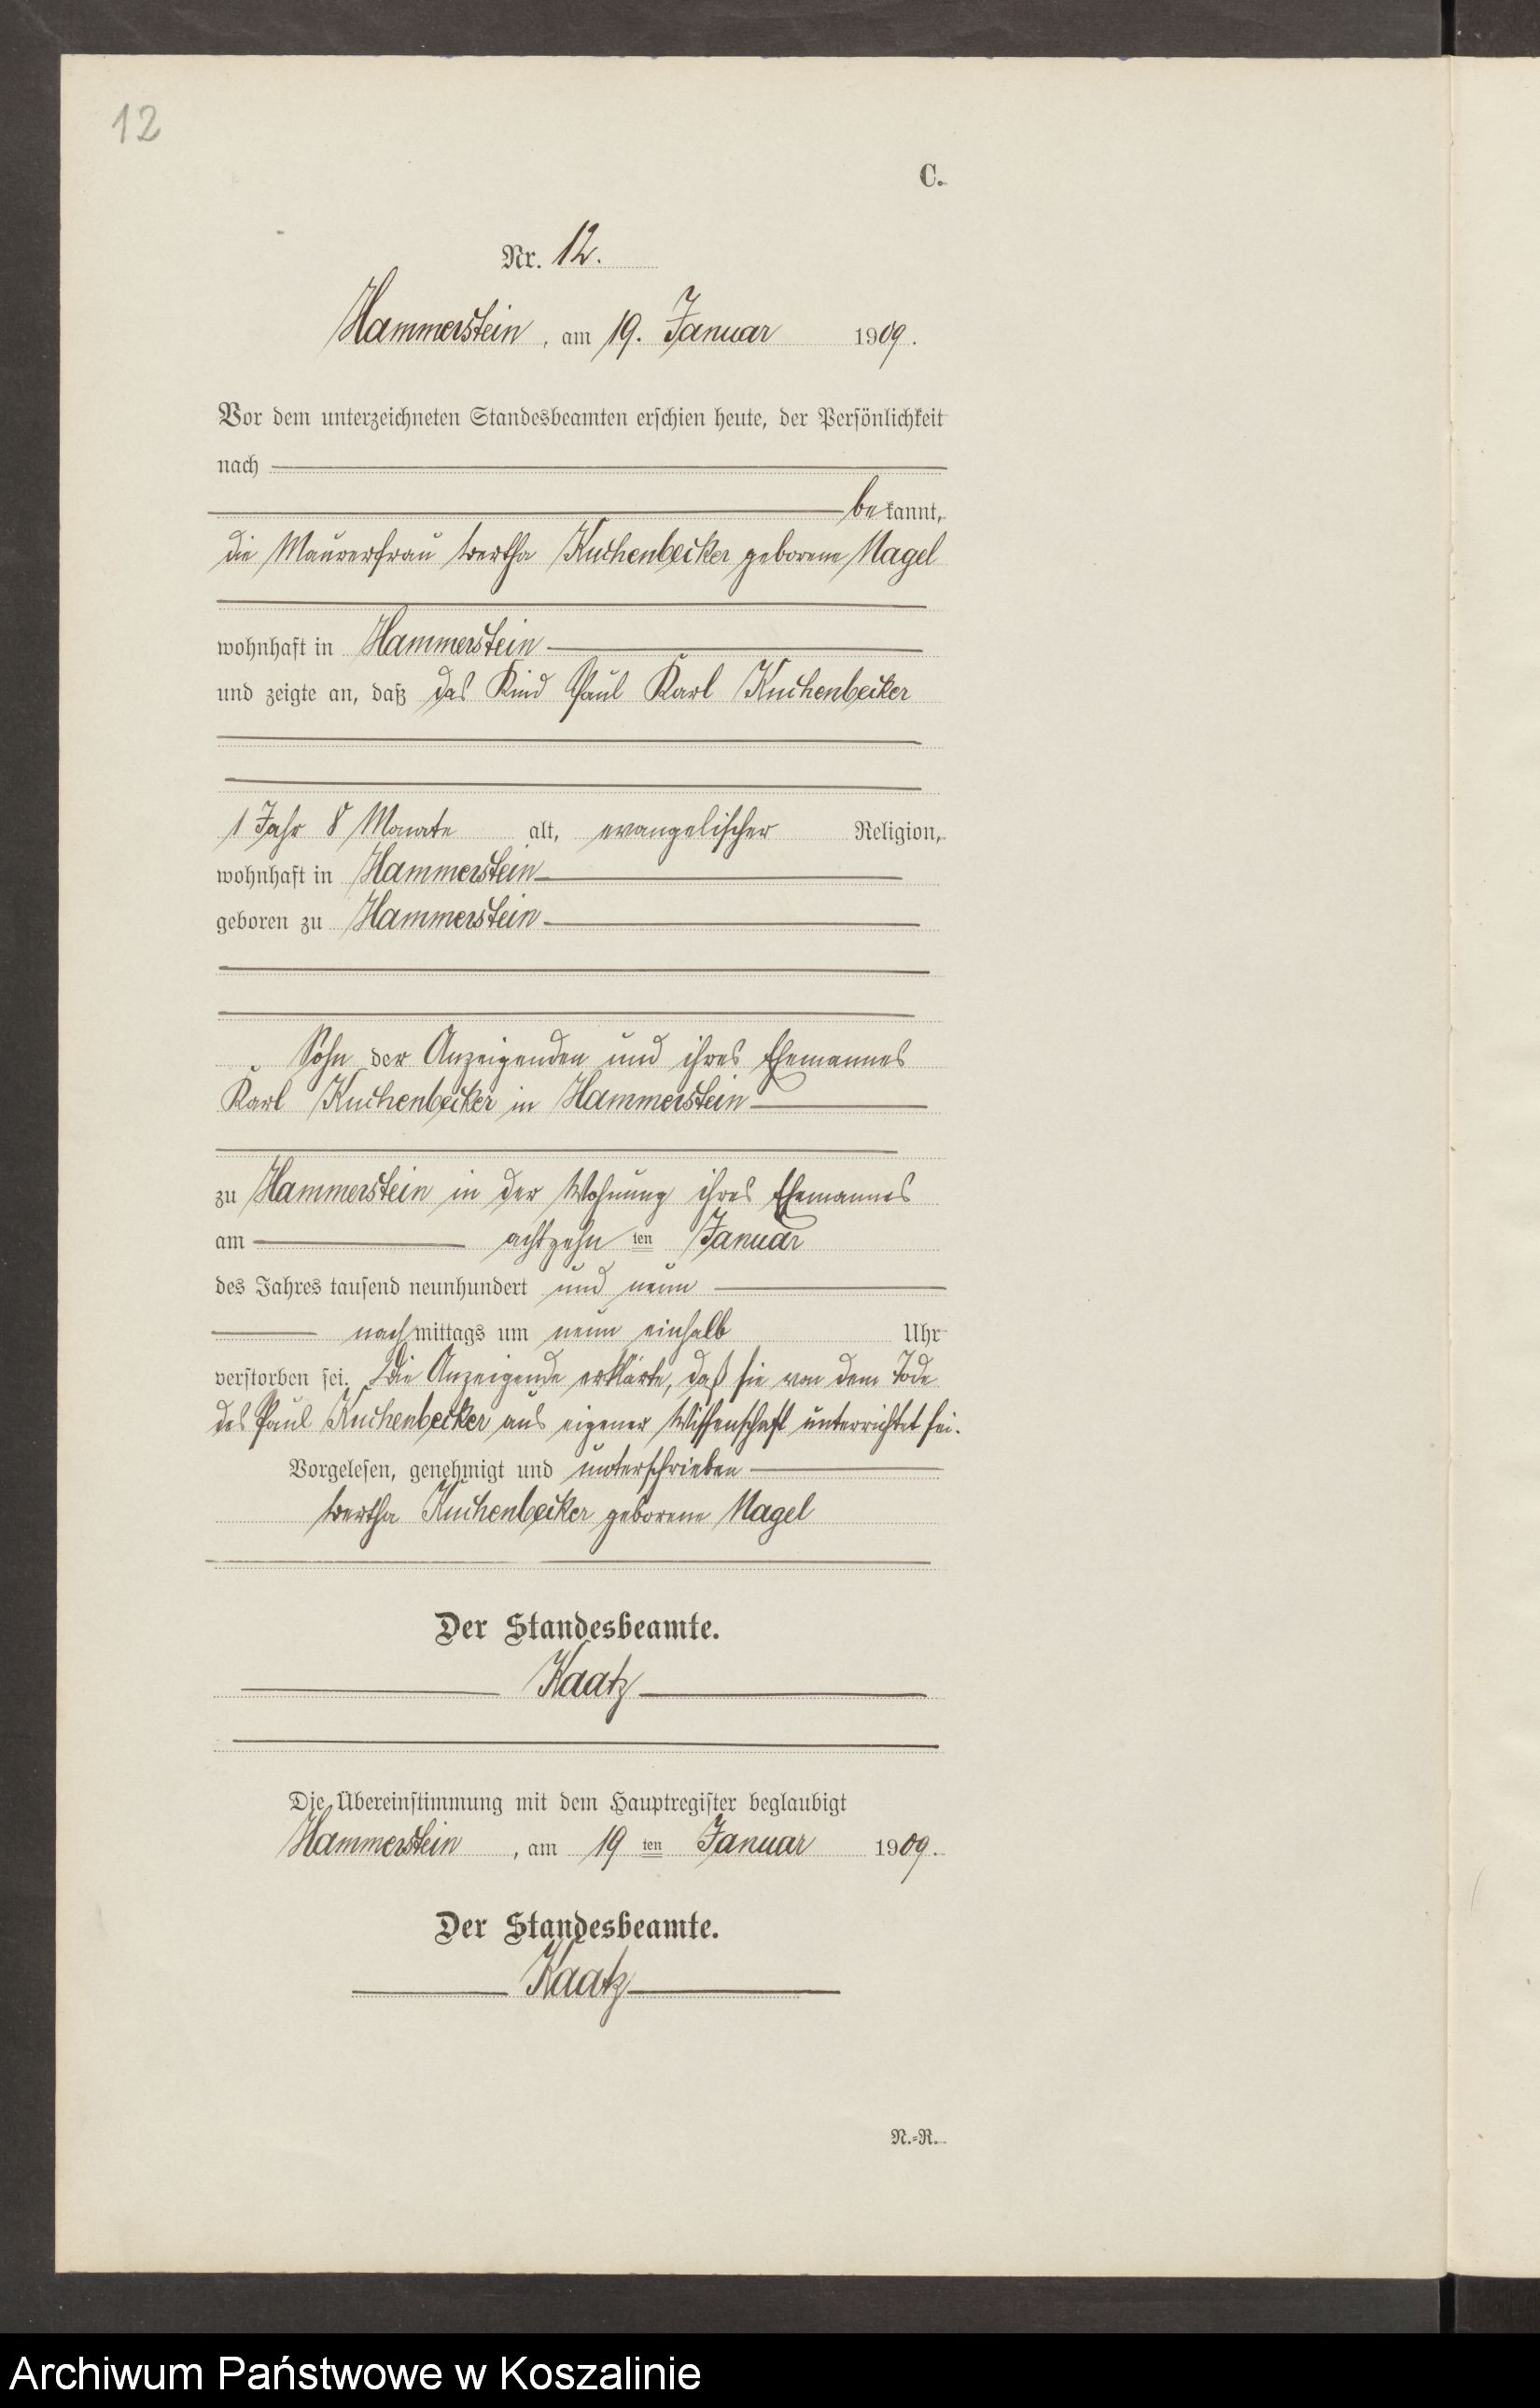 12
C.
Nr. 12.
Hammerstein, am 19. Januar 1909.
Vor dem unterzeichneten Standesbeamten erschien heute, der Persönlichkeit
nach
bekannt,
die Maurerfrau Bertha Kuchenbecker geborene Nagel
wohnhaft in Hammerstein
und zeigte an, daß das Kind Paul Karl Kuchenbecker
1 Jahr 8 Monate alt, evangelischer Religion,
wohnhaft in Hammerstein
geboren zu Hammerstein
Sohn der Anzeigenden und ihres Ehemannes
Karl Kuchenbecker in Hammerstein
zu Hammerstein in der Wohnung ihres Ehemannes
am achtzehn ten Januar
des Jahres tausend neunhundert und neun
nachmittags um neun einhalb Uhr
verstorben sei. Die Anzeigende erklärte, daß sie von dem Tode
des Paul Kuchenbecker aus eigener Wissenschaft unterrichtet sei.
Vorgelesen, genehmigt und unterschrieben
Bertha Kuchenbecker geborene Nagel
Der Standesbeamte.
Kaatz
Die Übereinstimmung mit dem Hauptregister beglaubigt
Hammerstein, am 19 ten Januar 1909.
Der Standesbeamte.
Kaatz
N.-R.
Archiwum Państwowe w Koszalinie